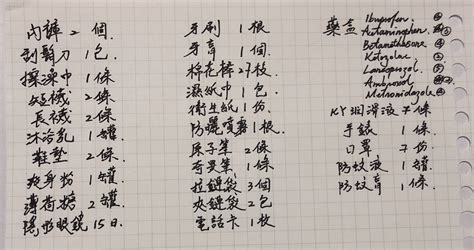 內褲 2 個.
刮鬍刀 1 包.
擦澡巾 1 條
短襪 2 條.
長襪 2 條.
沐浴乳 1 罐
鞋墊 2 條.
爽身粉 1 罐
薄荷糖 2 罐
隱形眼鏡 15日.
牙刷 1 根
牙膏 1 個.
棉花棒 27枚.
濕紙巾 1 包.
衛生紙 1 份.
防曬噴霧 1 根.
原子筆 2 條.
奇異筆 1 條.
拉鏈袋 3個
夾鏈袋 2包
電話卡 1 枚
藥盒 Ibuprofen
Acetaminophen
Betamethasone
Ketorolac
Lansoprazol
Ambroxol
Metronidazole
KY潤滑液 7 條
手錶 1 條.
口罩 7 份
防蚊液 1 罐.
防蚊膏 1 條.